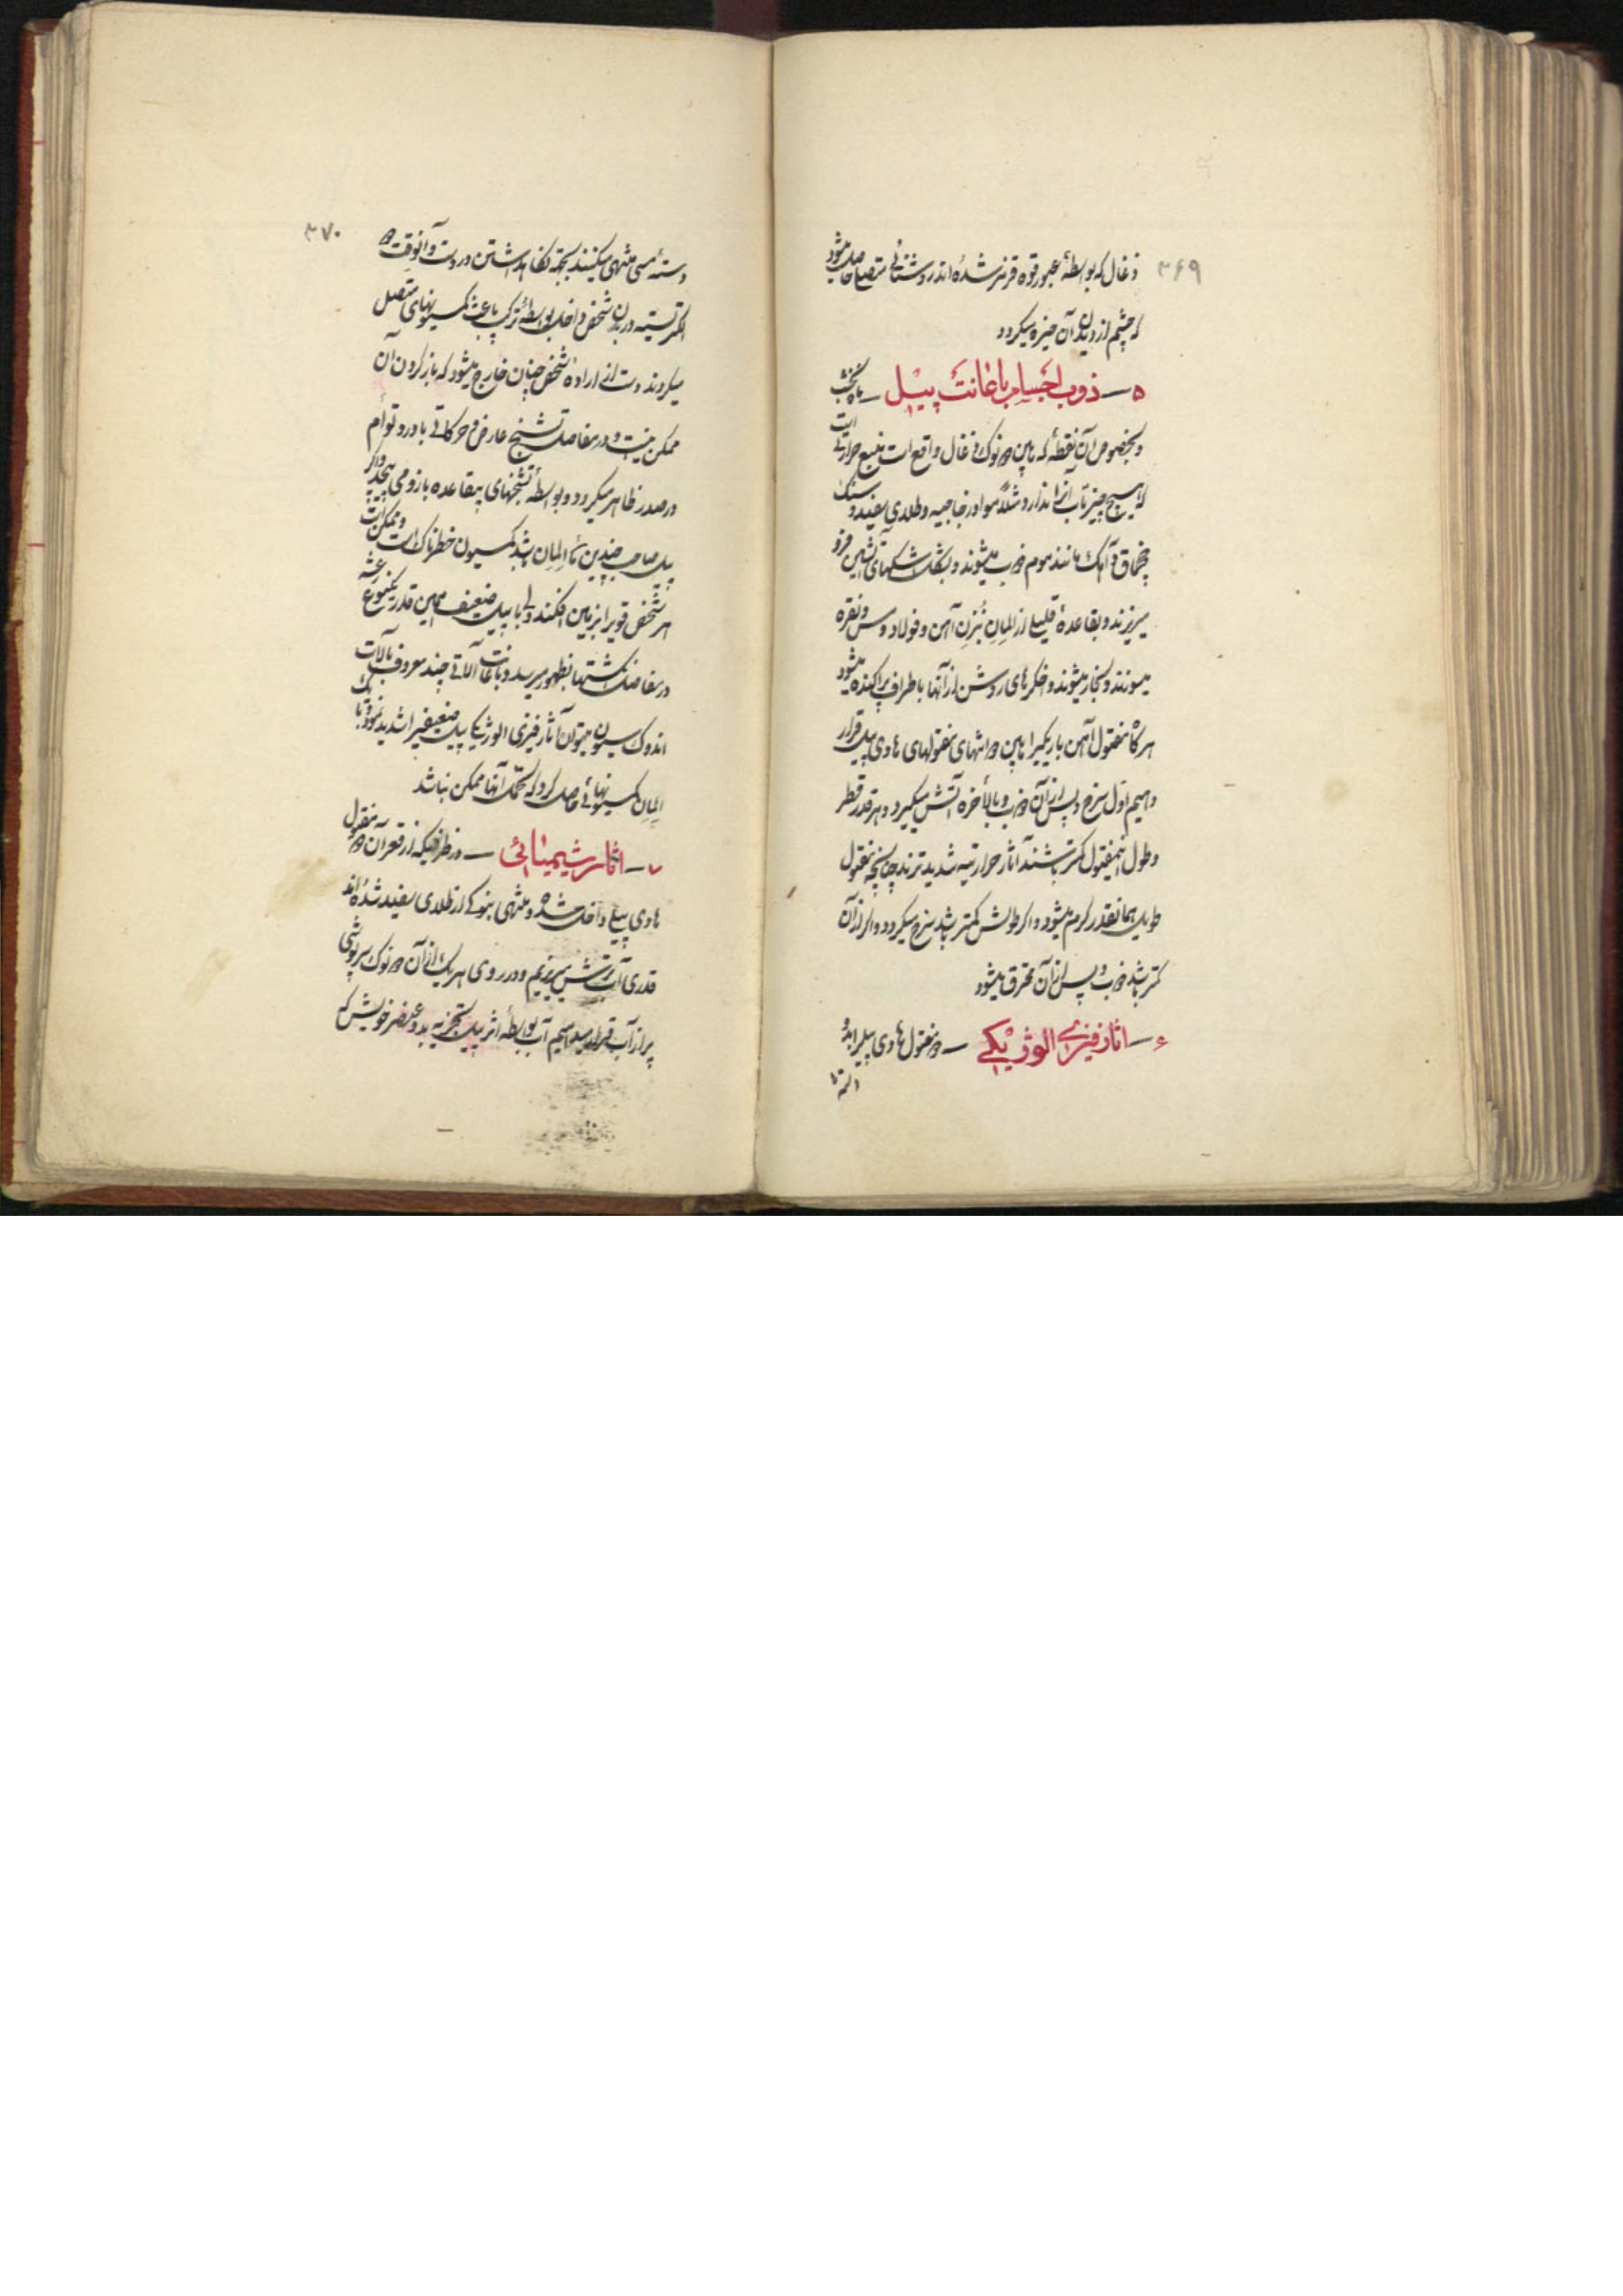 ۳۶۹
ذغال که بواسطهٔ عبور قوه قرمز شده‌اند روشنائی متصل حاصل میشود
که چشم از دیدن آن خیره میکردد
۵ — ذوب اجسام باعانت پیل —
وبخصوص آن نقطهٔ که مابین دو نوک ذغال واقع است منبع حرارتی است
که هیچ چیز تاب آنرا ندارد مثلاً مواد زجاجیه وطلای سفید و سنک
چخماق و آهک مانند موم ذوب میشوند و بشکل اشکهای آتشین فرو
میریزند و بقاعدهٔ قلیلی از المان بُنزن آهن و فولاد و مس و نقره
میسوزند و بخار میشوند و اخکرهای روشن از آنها باطراف پراکنده میشود
هرکاه مفتول آهن باریکیرا مابین دو انتهای مفتولهای هادی پیل قرار
دهیم اول سرخ و پس از آن ذوب و بالأخره آتش میکیرد و هرقدر قطر
و طول اینمفتول کمتر باشند آثار حرارتیه شدیدترند چنانچه مفتول
طویل همانقدر کرم میشود و اکر طولش کمتر باشد سرخ میکردد و اکر از آن
کمتر باشد ذوب و پس از آن محترق میشود
۶ — اثار فیزی الوژیکی — دو مفتول هادی پیلرا بدو
۳۷۰
دستهٔ مسی منتهی میکنند بجهة نکاهداشتن در دست و آنوقت دو
الکتریسیته در بدن شخص داخل بواسطهٔ ترکیب باعث کمسیونهای متصل
میکردند دست از ارادهٔ شخص چنان خارج میشود که باز کردن آن
ممکن نیست و در مفاصل تشنج عارض و حرکاتی با درد توأم
در صدر ظاهر میکردد و بواسطهٔ تشنجهای بیقاعده بازو می‌پیچد و اکر
پیل صاحب چندین المان باشد کمسیون خطرناک است و ممکن است
هر شخص قویرا بزمین افکند ولی با پیل ضعیف همین قدر یکنوع رعشه
در مفاصل انکشتها بظهور میرسد و باعانت آلاتی چند معروف بآلات
اندوکسیون میتوان آثار فیزی الوژیکی پیل ضعیفیرا شدید نمود و با یک
المان کمسیونهائی حاصل کرد که تحمل آنها ممکن نباشد
۷ — اثار شیمیائی — در ظرفیکه از قعر آن دو مفتول
هادی پیلی داخل شده و منتهی بنوکی از طلای سفید شده‌اند
قدری آب ترش میریزیم و در روی هریک از آن دو نوک سرپوشی
پر از آب قرار میدهیم آب بواسطهٔ اثر پیل تجزیه بدو عنصر خویش که